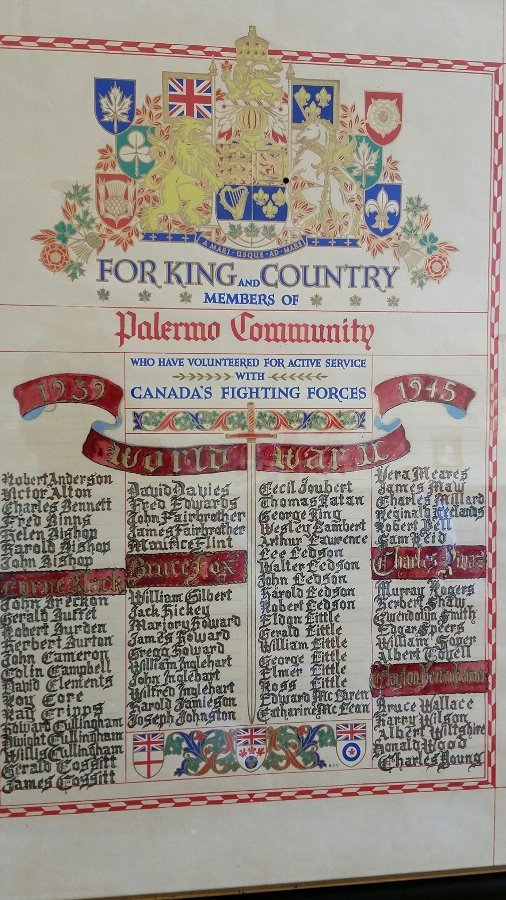 A MARI · USQUE · AD · MARE
FOR KING AND COUNTRY
MEMBERS OF
Palermo Community
WHO HAVE VOLUNTEERED FOR ACTIVE SERVICE
WITH
CANADA'S FIGHTING FORCES
1939
1945
World War II
Robert Anderson
Victor Alton
Charles Bennett
Fred Binns
Helen Bishop
Harold Bishop
John Bishop
John Breckon
Gerald Buffet
Robert Burden
Herbert Burton
John Cameron
Colin Campbell
David Clements
Roy Core
Ray Cripps
Edward Cullingham
Dwight Cullingham
Willis Cullingham
Gerald Cossitt
James Cossitt
David Davies
Fred Edwards
John Fairbrother
James Fairbrother
Maurice Flint
Bruce Fox
William Gilbert
Jack Hickey
Marjory Howard
James Howard
Gregg Howard
William Inglehart
John Inglehart
Wilfred Inglehart
Harold Jamieson
Joseph Johnston
Cecil Joubert
Thomas
George King
Wesley Lambert
Arthur Lawrence
Lee Ledson
Walter Ledson
John Ledson
Harold Ledson
Robert Ledson
Eldon Little
Gerald Little
William Little
George Little
Elmer Little
Ross Little
Edward McLaren
Catharine McLean
Vera Meares
James May
Charles Millard
Reginald Neelands
Robert Pell
Sam Reid
Charles
Murray Rogers
Herbert Shaw
Gwendolyn Smith
Edgar Speers
William Soper
Albert Tovell
Bruce Wallace
Harry Wilson
Albert Wiltshire
Donald Wood
Charles Young